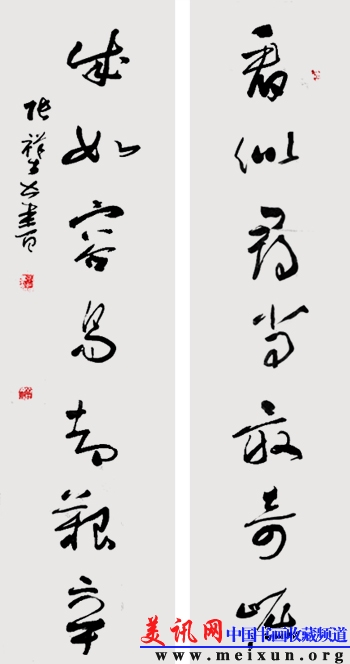 看似尋常最奇崛
成如容易却艱辛
美讯网
中国书画收藏频道
www.meixun.org